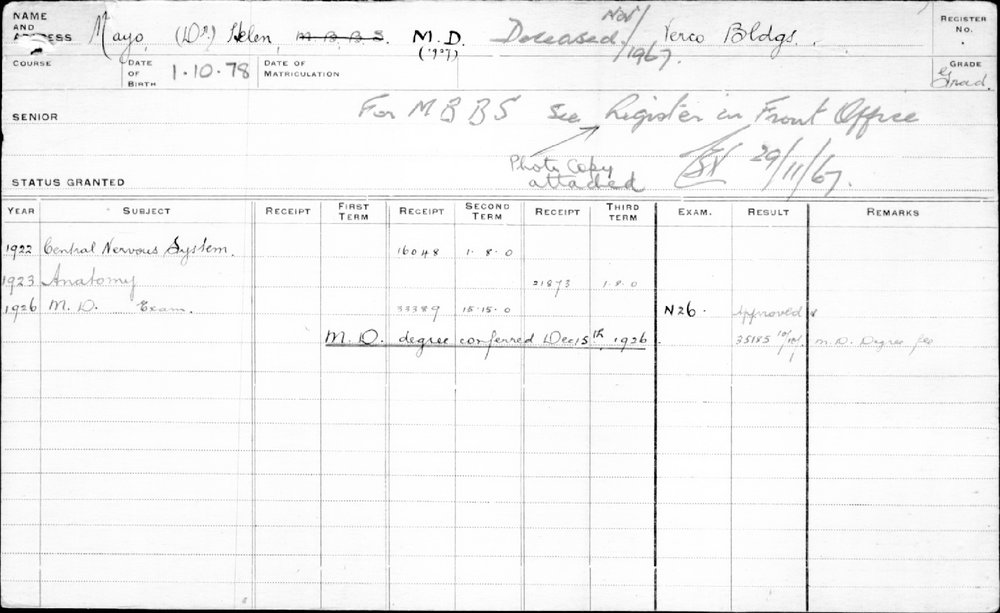 NAME AND ADDRESS Mayo, (Dr) Helen, M.B.B.S. M.D. (1927) Deceased Nov/1967. Verco Bldgs. REGISTER No.
COURSE DATE OF BIRTH 1.10.78 DATE OF MATRICULATION GRADE Grad.
SENIOR For MBBS see Register in Front Office
Photo Copy attached 29/11/67.
STATUS GRANTED
YEAR SUBJECT RECEIPT FIRST TERM RECEIPT SECOND TERM RECEIPT THIRD TERM EXAM. RESULT REMARKS
1922 Central Nervous System. 16048 1.8.0
1923 Anatomy 21873 1.8.0
1926 M.D. Exam. 33389 15.15.0 N26. Approved
M.D. degree conferred Dec 15th 1926. 35185 M.D. Degree fee